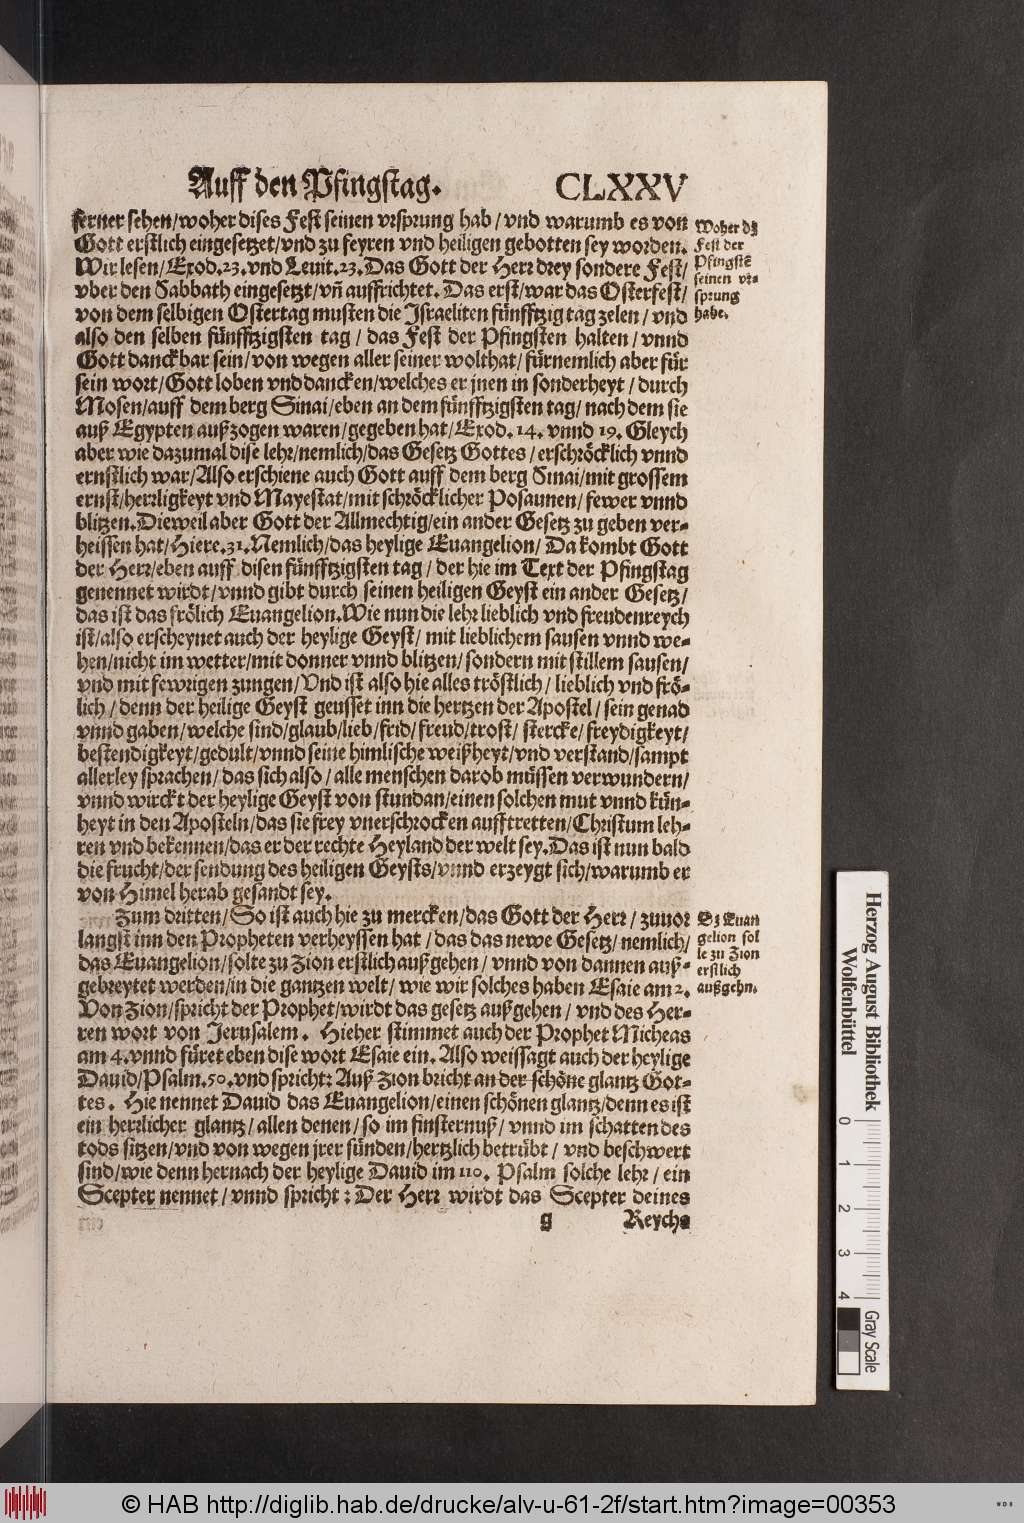 Auff den Pfingstag. CLXXV
ferner sehen/woher dises Fest seinen vrsprung hab/vnd warumb es von
Gott erstlich eingesetzet/vnd zu feyren vnd heiligen gebotten sey worden.
Wir lesen/Exod.23.vnd Leuit.23.Das Gott der Herr drey sondere Fest/
vber den Sabbath eingesetzt/vñ auffrichtet. Das erst/war das Osterfest/
von dem selbigen Ostertag musten die Israeliten fünfftzig tag zelen/vnd
also den selben fünfftzigsten tag/das Fest der Pfingsten halten/vnnd
Gott danckbar sein/von wegen aller seiner wolthat/fürnemlich aber für
sein wort/Gott loben vnd dancken/welches er jnen in sonderheyt/durch
Mosen/auff dem berg Sinai/eben an dem fünfftzigsten tag/nach dem sie
auß Egypten außzogen waren/gegeben hat/Exod.14.vnnd 19. Gleych
aber wie dazumal dise lehr/nemlich/das Gesetz Gottes/erschröcklich vnnd
ernstlich war/Also erschiene auch Gott auff dem berg Sinai/mit grossem
ernst/herrligkeyt vnd Mayestat/mit schröcklicher Posaunen/fewer vnnd
blitzen.Dieweil aber Gott der Allmechtig/ein ander Gesetz zu geben ver-
heissen hat/Hiere.31.Nemlich/das heylige Euangelion/Da kombt Gott
der Herr/eben auff disen fünfftzigsten tag/der hie im Text der Pfingstag
genennet wirdt/vnnd gibt durch seinen heiligen Geyst ein ander Gesetz/
das ist das frölich Euangelion.Wie nun die lehr lieblich vnd freudenreych
ist/also erscheynet auch der heylige Geyst/mit lieblichem sausen vnnd we-
hen/nicht im wetter/mit donner vnnd blitzen/sondern mit stillem sausen/
vnd mit fewrigen zungen/Vnd ist also hie alles tröstlich/lieblich vnd frö-
lich/denn der heilige Geyst geusset inn die hertzen der Apostel/sein genad
vnnd gaben/welche sind/glaub/lieb/frid/freud/trost/stercke/freydigkeyt/
bestendigkeyt/gedult/vnnd seine himlische weißheyt/vnd verstand/sampt
allerley sprachen/das sich also/alle menschen darob müssen verwundern/
vnnd wirckt der heylige Geyst von stundan/einen solchen mut vnnd kün-
heyt in den Aposteln/das sie frey vnerschrocken aufftretten/Christum leh-
ren vnd bekennen/das er der rechte Heyland der welt sey.Das ist nun bald
die frucht/der sendung des heiligen Geysts/vnnd erzeygt sich/warumb er
von Himel herab gesandt sey.
Zum dritten/So ist auch hie zu mercken/das Gott der Herr/zuuor
langst inn den Propheten verheyssen hat/das das newe Gesetz/nemlich/
das Euangelion/solte zu Zion erstlich außgehen/vnnd von dannen auß-
gebreytet werden/in die gantzen welt/wie wir solches haben Esaie am 2.
Von Zion/spricht der Prophet/wirdt das gesetz außgehen/vnd des Her-
ren wort von Jerusalem. Hieher stimmet auch der Prophet Micheas
am 4.vnnd füret eben dise wort Esaie ein. Also weissagt auch der heylige
Dauid/Psalm.50.vnd spricht: Auß Zion bricht an der schöne glantz Got-
tes. Hie nennet Dauid das Euangelion/einen schönen glantz/denn es ist
ein herrlicher glantz/allen denen/so im finsternuß/vnnd im schatten des
tods sitzen/vnd von wegen jrer sünden/hertzlich betrübt/vnd beschwert
sind/wie denn hernach der heylige Dauid im 110. Psalm solche lehr/ein
Scepter nennet/vnnd spricht: Der Herr wirdt das Scepter deines
g Reychs
Woher dz
Fest der
Pfingstẽ
seinen vr-
sprung
habe.
Dz Euan
gelion sol
le zu Zion
erstlich
außgehn.
Herzog August Bibliothek
Wolfenbüttel
0 1 2 3 4
Gray Scale
© HAB http://diglib.hab.de/drucke/alv-u-61-2f/start.htm?image=00353